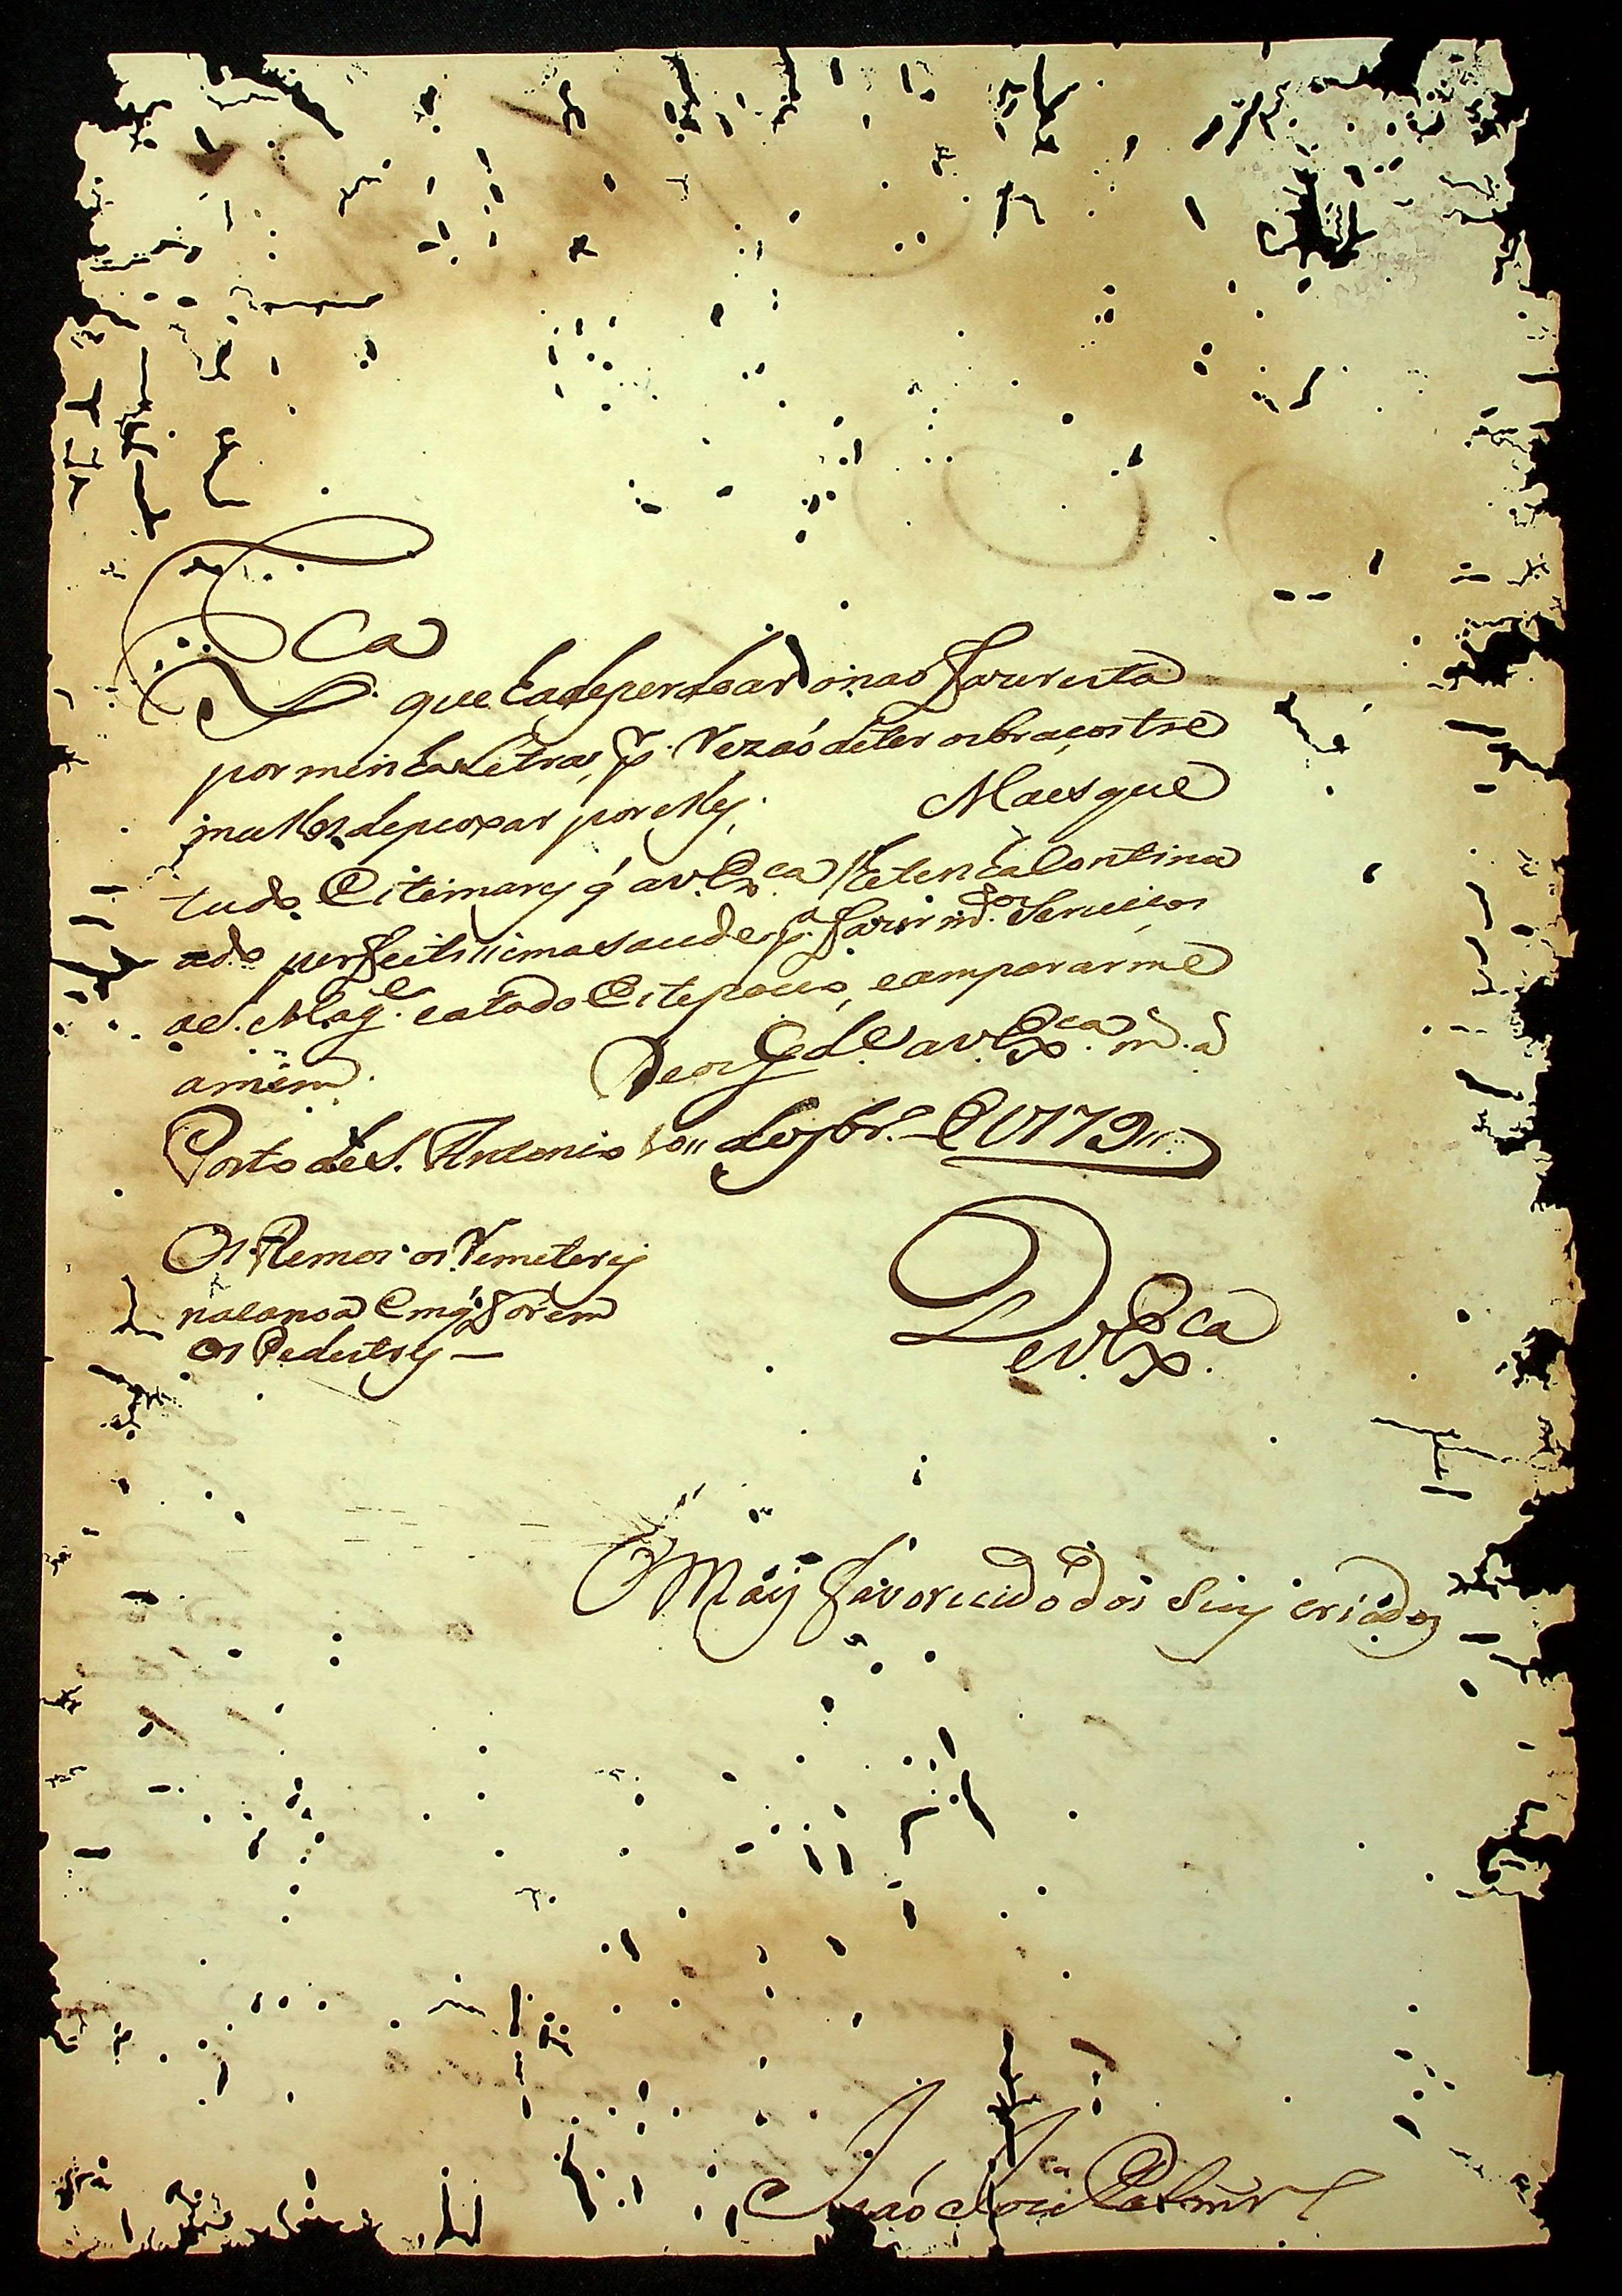 Ex.ca
que hadeperdoar onaó fazer esta
por minha Letra, p.r Rezaó deter os braços tre
mullos depuxar por elles; Maes que
tudo Estimarey q' av. Ex.ca esteja Contínu
ado perfeitissima saude p.a fazer m.tos Serviços
as. Mag.e eatodo Este povo, eamparar me
amem. Deos G.de av Ex.ca m.s a.s
Porto de S. Antonio 10,, de 7br.o de 1779,,
Os Remos os Remeterey
nacanoa Em q' forem
Os Pedestres —
De V. Ex.ca
O Mais favorecido dos Seus criados
Joaó Joze